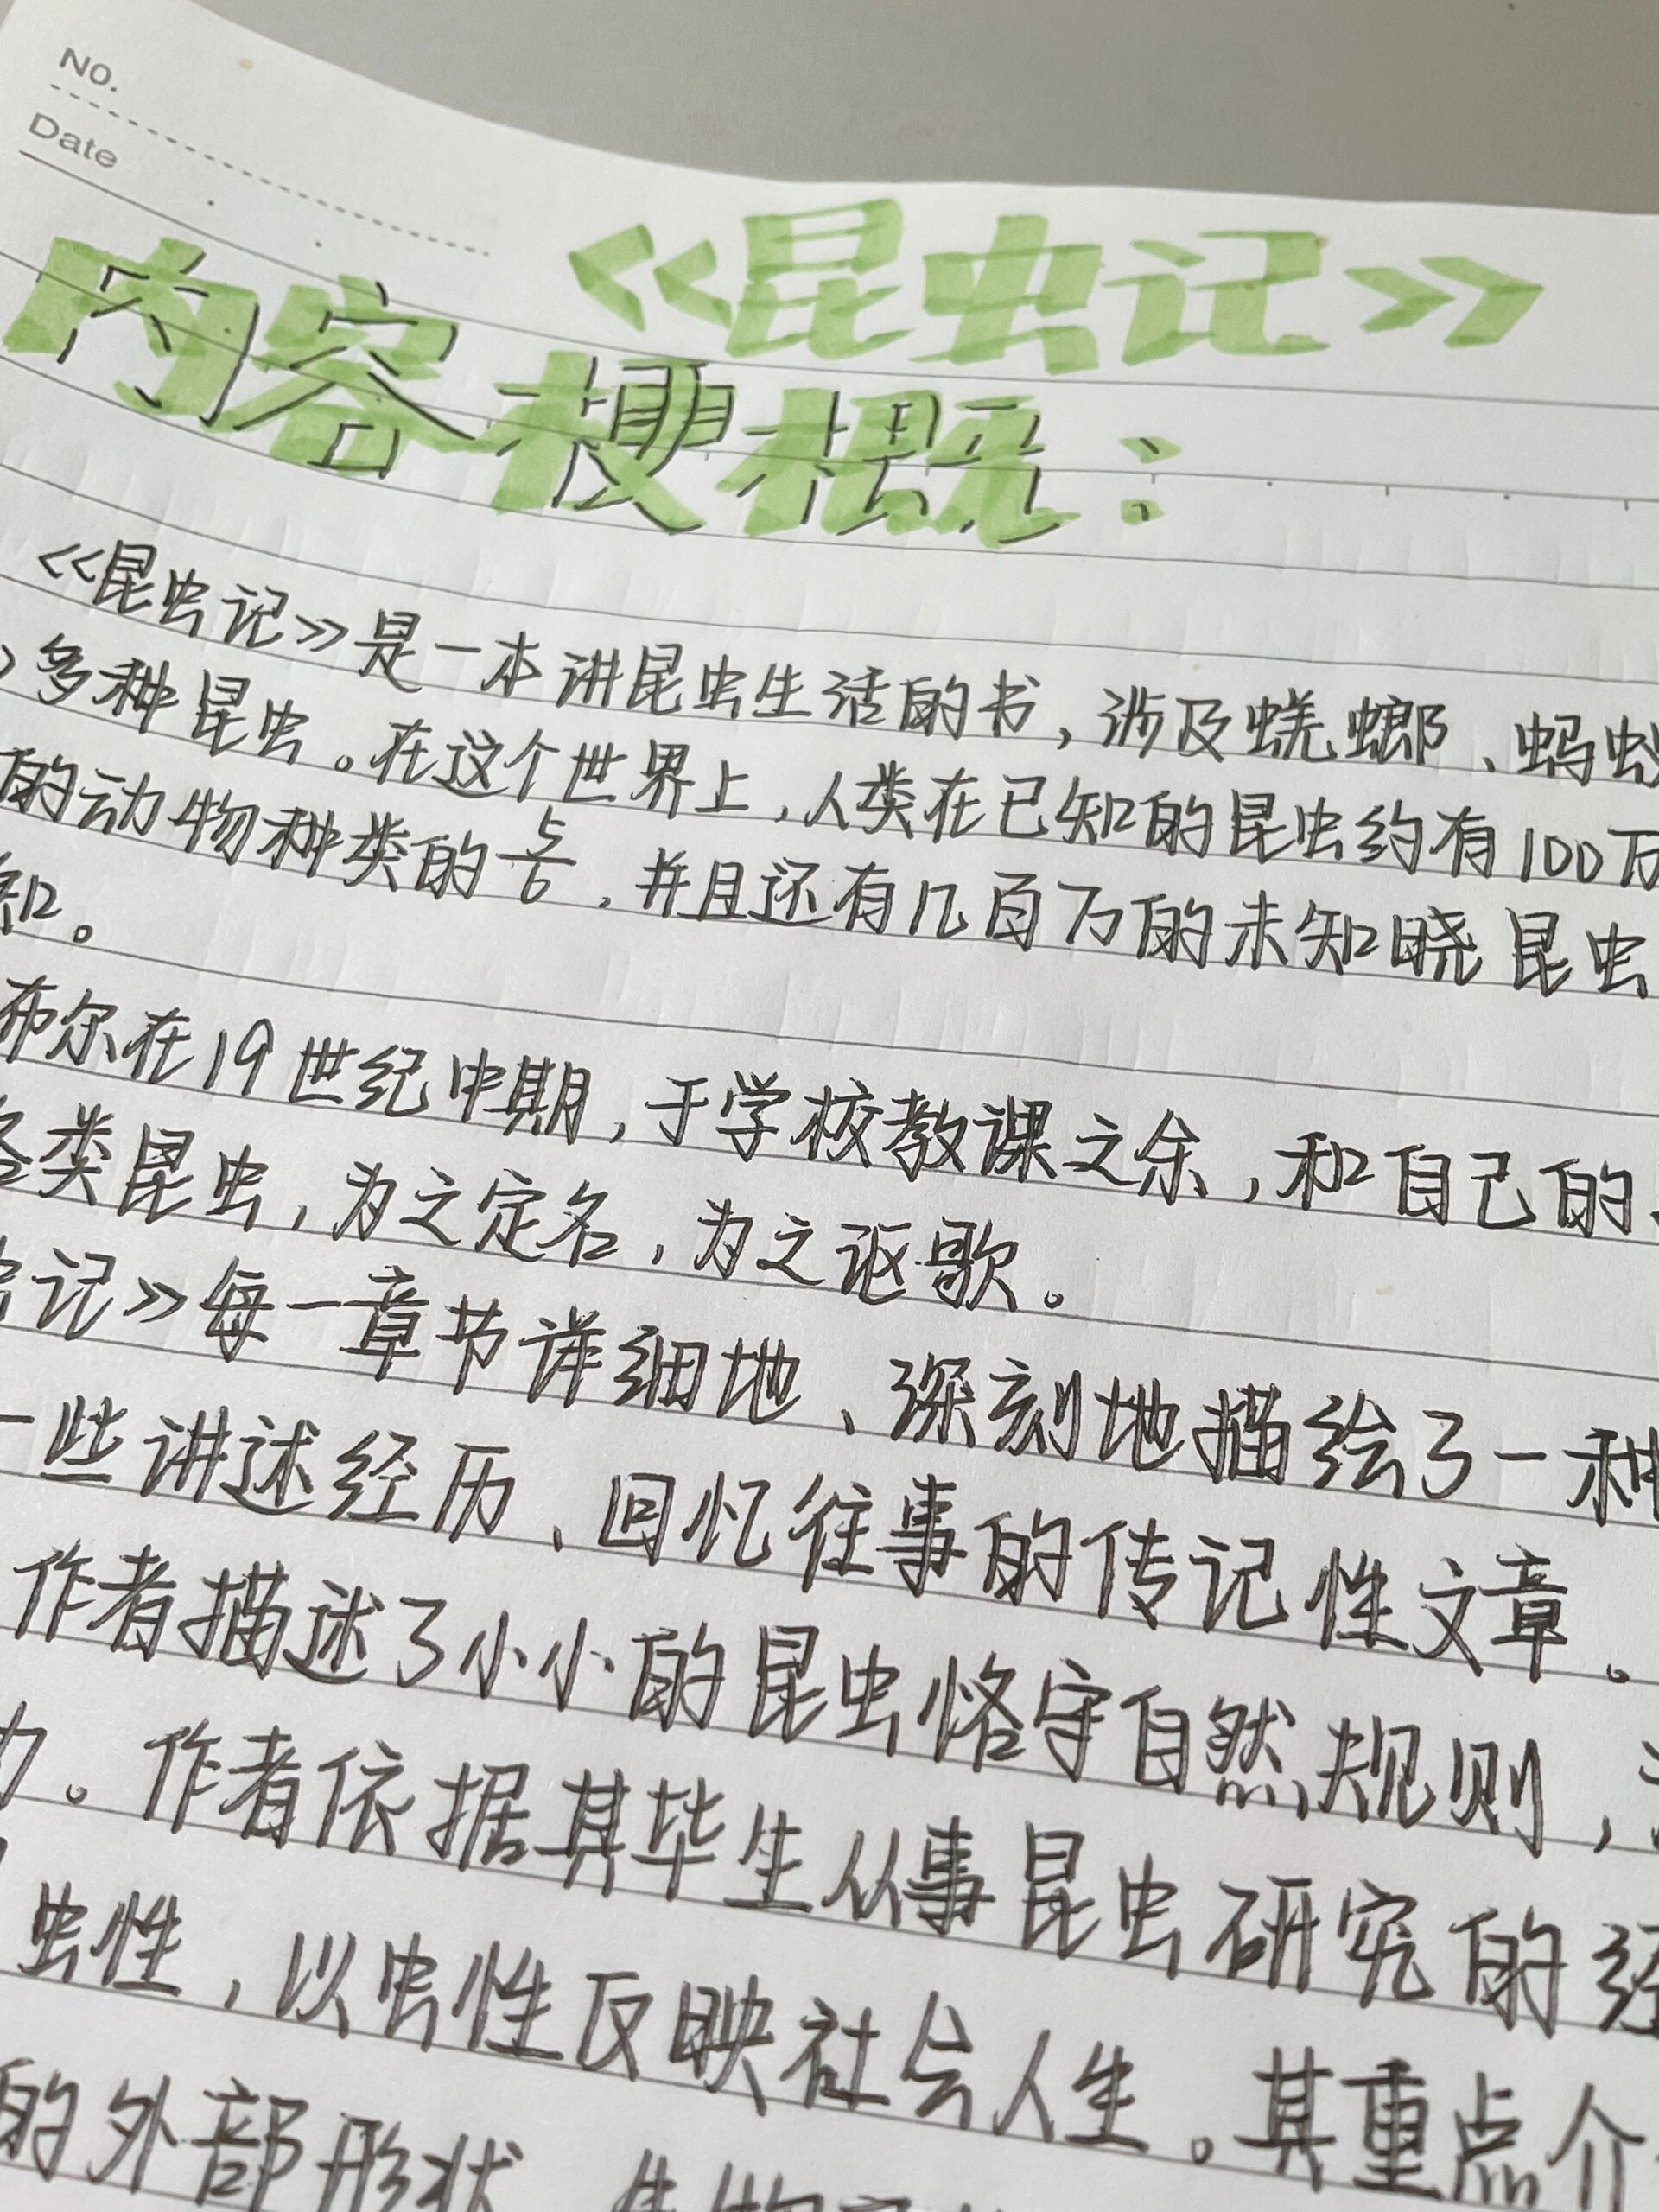 No.
Date
《昆虫记》
内容梗概：
《昆虫记》是一本讲昆虫生活的书，涉及蜣螂、蚂
多种昆虫。在这个世界上，人类在已知的昆虫约有100万
的动物种类的5/6，并且还有几百万的未知晓昆虫
知。
布尔在19世纪中期，于学校教课之余，和自己的
各类昆虫，为之定名，为之讴歌。
记》每一章节详细地、深刻地描绘了一种
一些讲述经历、回忆往事的传记性文章。
作者描述了小小的昆虫恪守自然规则，
力。作者依据其毕生从事昆虫研究的经
虫性，以虫性反映社会人生。其重点介
的外部形状、生物